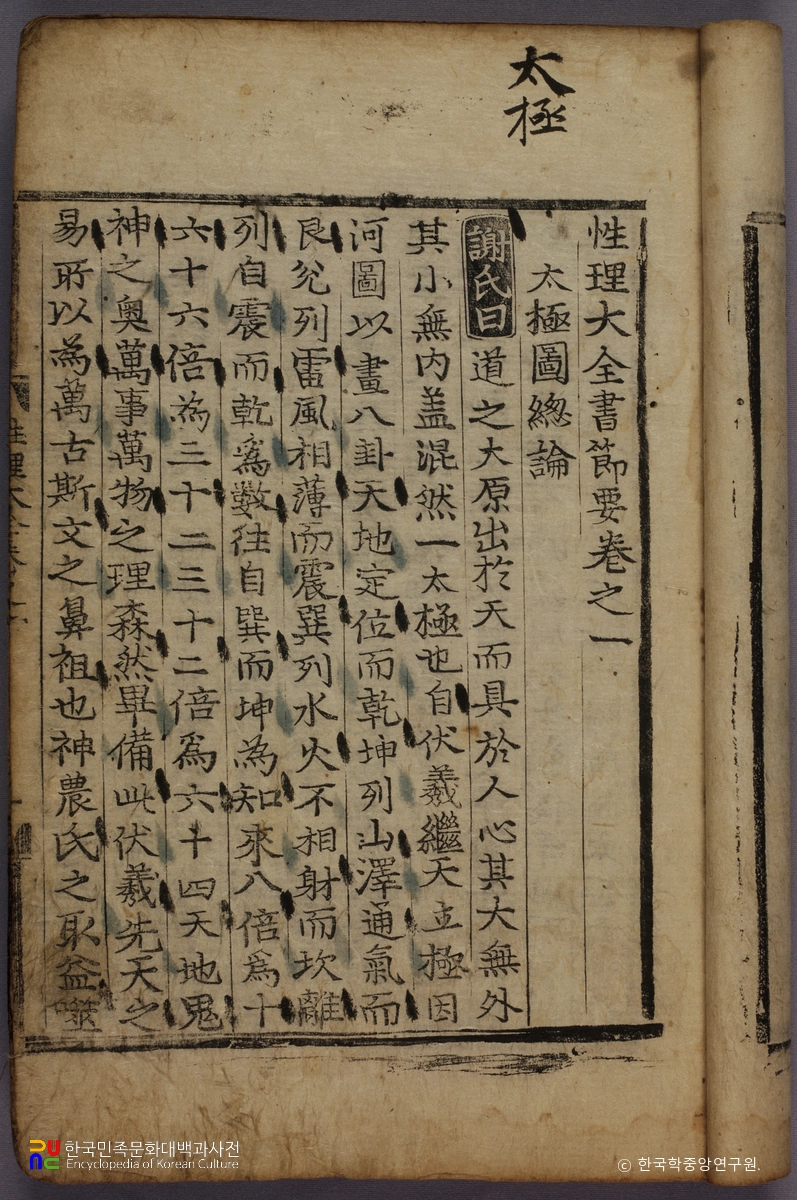 太極
性理大全書節要卷之一
太極圖緫論
謝氏曰道之大原出於天而具於人心其大無外
其小無內盖混然一太極也自伏羲繼天立極因
河圖以畫八卦天地定位而乾坤列山澤通氣而
艮兊列雷風相薄而震巽列水火不相射而坎離
列自震而乾爲數徃自巽而坤為知來八倍爲十
六十六倍為三十二三十二倍爲六十四天地鬼
神之奧萬事萬物之理森然畢備此伏羲先天之
易所以為萬古斯文之鼻祖也神農氏之取益噬
性理大全卷之一
한국민족문화대백과사전
Encyclopedia of Korean Culture
© 한국학중앙연구원.